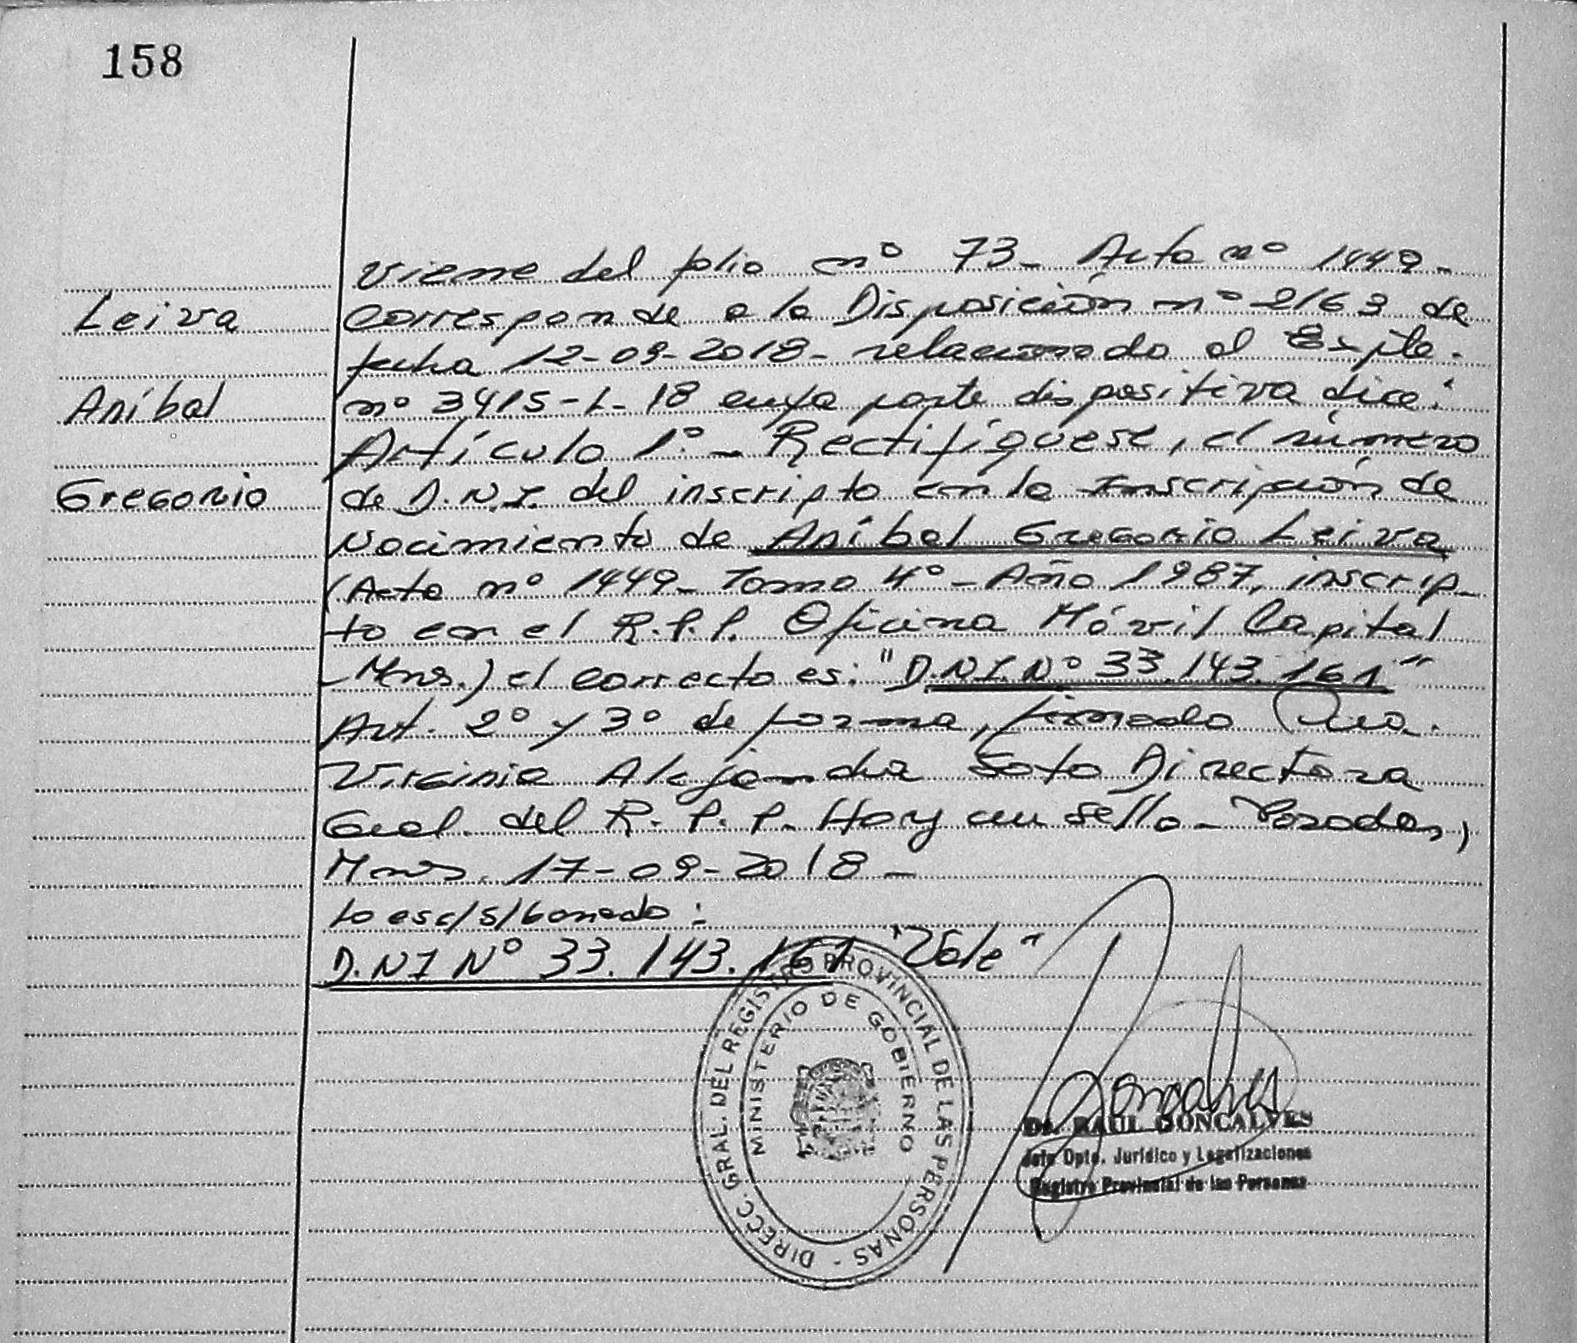 158
Leiva
Aníbal
Gregorio
Viene del folio nº 73- Acta nº 1449-
Corresponde a la Disposición nº 2163 de
fecha 12-09-2018- relacionado al Expte.
nº 3415-L-18 cuya parte dispositiva dice:
Artículo 1º- Rectifíquese, el número
de D.N.I. del inscripto en la Inscripción de
Nacimiento de Aníbal Gregorio Leiva
(Acta nº 1449- Tomo 4º- Año 1987, inscrip-
to en el R.P.P. Oficina Móvil Capital
-Mnes.) el correcto es: "D.N.I. Nº 33.143.161"
Art. 2º y 3º de forma, firmado
Virginia Alejandra Soto Directora
Gral. del R.P.P. Hay un sello- Posadas,
Mnes. 17-09-2018-
Lo esc/s/borrado:
D.N.I Nº 33.143.161 "Vale"
DIRECC. GRAL. DEL REGISTRO PROVINCIAL DE LAS PERSONAS -
MINISTERIO DE GOBIERNO
Dr. RAUL GONCALVES
Jefe Dpto. Jurídico y Legalizaciones
Registro Provincial de las Personas